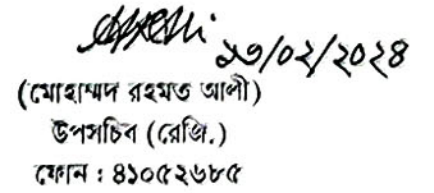 ১৩/০২/২০২৪
(মোহাম্মদ রহমত আলী)
উপসচিব (রেজি.)
ফোন : ৪১০৫২৬৮৫